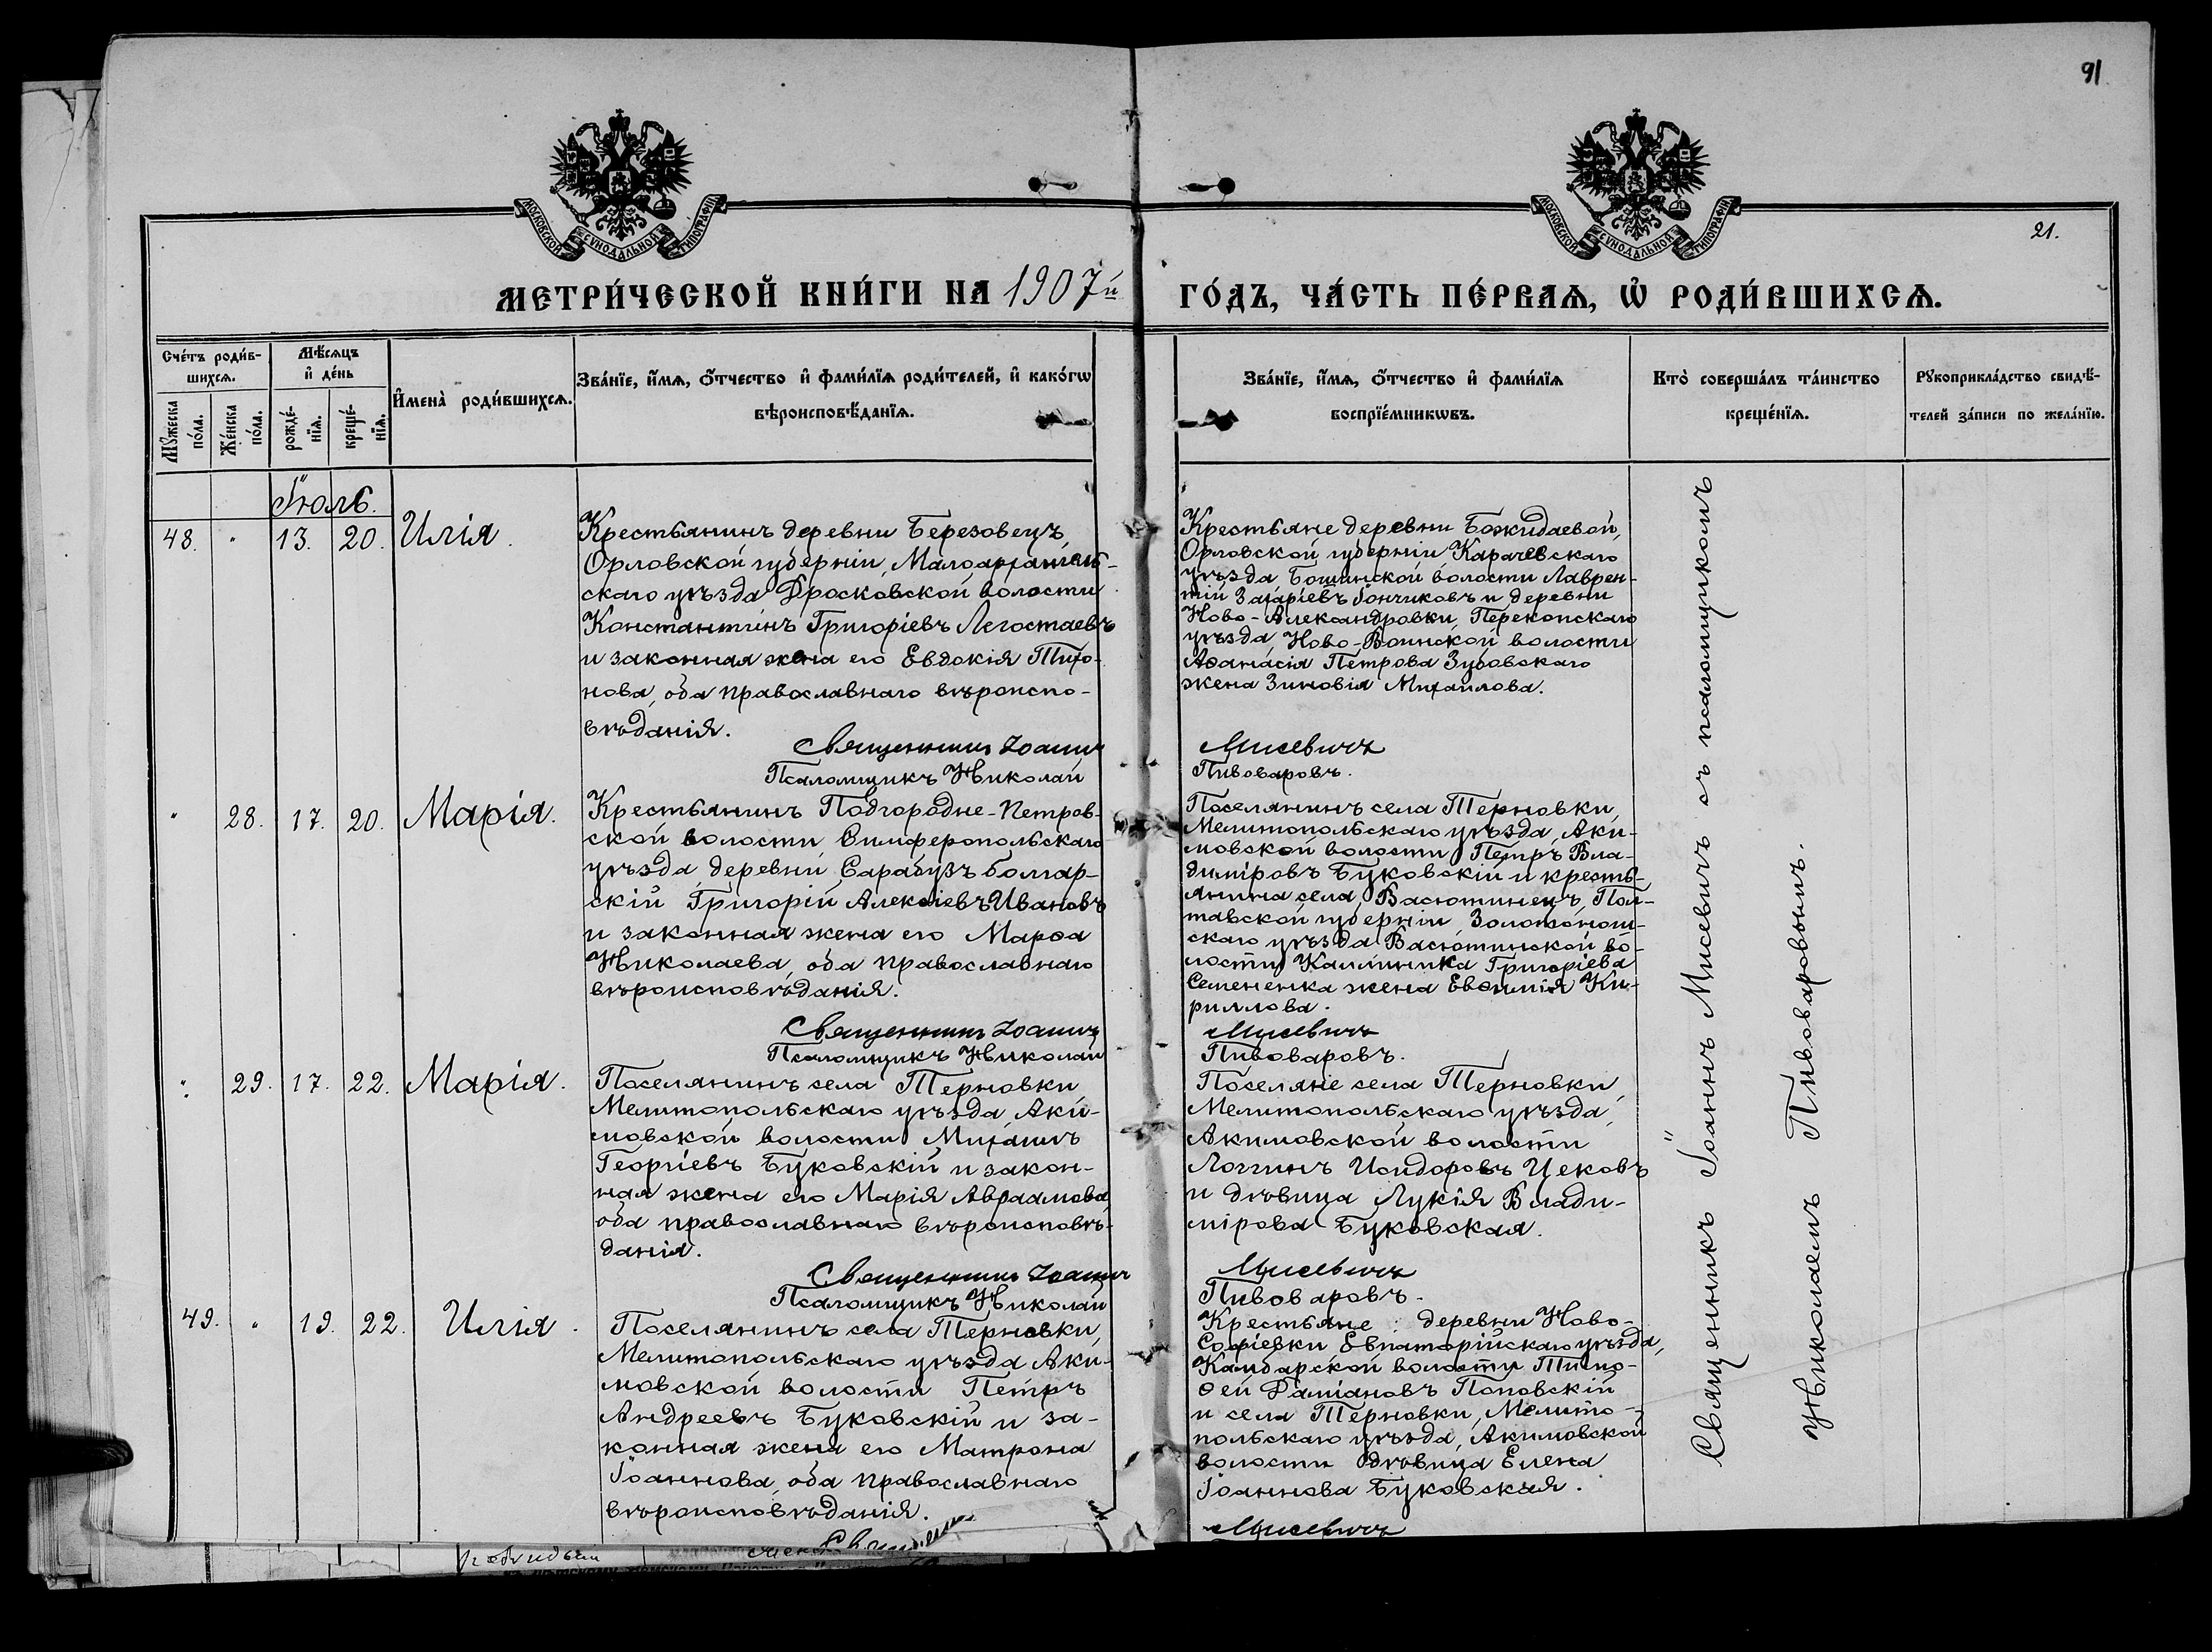 91
21.
МОСКОВСКОЙ СѴНОДАЛЬНОЙ ТИПОГРАФІИ
МОСКОВСКОЙ СѴНОДАЛЬНОЙ ТИПОГРАФІИ
МЕТРИ́ЧЕСКОЙ КНИ́ГИ НА 1907й ГО́ДЪ, ЧА́СТЬ ПЕ́РВАѦ, Ѡ҆ РОДИ́ВШИХСѦ.
Сче́тъ роди́в-
шихсѧ.
Мꙋ́жеска
по́ла.
Же́нска
по́ла.
Мѣ́сѧцъ
и҆ де́нь
рожде́-
нїѧ.
креще́-
нїѧ.
И҆мена̀ роди́вшихсѧ.
Зва́нїе, и҆́мѧ, ѻ҆́тчество и҆ фами́лїѧ роди́телей, и҆ како́гѡ
вѣроисповѣ́данїѧ.
Зва́нїе, и҆́мѧ, ѻ҆́тчество и҆ фами́лїѧ
воспрїе́мникѡвъ.
Кто̀ соверша́лъ та́инство
креще́нїѧ.
Рꙋкоприкла́дство свидѣ́-
телей за́писи по жела́нїю.
Іюль.
48. " 13. 20. Илія.
Крестьянинъ деревни Березовецъ,
Орловской губерніи, Малоархангель-
скаго уѣзда Дросковской волости
Константинъ Григоріевъ Легостаевъ
и законная жена его Евдокія Тихо-
нова, оба православнаго вѣроиспо-
вѣданія.
Священникъ Іоаннъ
Псаломщикъ Николай
Крестьяне деревни Божидаевой,
Орловской губерніи Карачевскаго
уѣзда, Бошинской волости Лаврен-
тій Захаріевъ Гончиковъ и деревни
Ново-Александровки, Перекопскаго
уѣзда, Ново-Воинской волости
Аѳанасія Петрова Зубовскаго
жена Зиновія Михаилова.
Мисевичъ
Пивоваровъ.
" 28. 17. 20. Марія.
Крестьянинъ Подгородне-Петров-
ской волости Симферопольскаго
уѣзда деревни Сарабузъ болгар-
скій Григорій Алексіевъ Ивановъ
и законная жена его Марѳа
Николаева, оба православнаго
вѣроисповѣданія.
Священникъ Іоаннъ
Псаломщикъ Николай
Поселянинъ села Терновки,
Мелитопольскаго уѣзда, Аки-
мовской волости Петръ Вла-
диміровъ Буковскій и кресть-
янина села Васютинецъ, Пол-
тавской губерніи, Золотонош-
скаго уѣзда Васютинской во-
лости, Каллиника Григоріева
Семененка жена Евѳимія Ки-
риллова.
Мисевичъ
Пивоваровъ.
" 29. 17. 22. Марія.
Поселянинъ села Терновки
Мелитопольскаго уѣзда, Аки-
мовской волости Михаилъ
Георгіевъ Буковскій и закон-
ная жена его Марія Авраамова,
оба православнаго вѣроисповѣ-
данія.
Священникъ Іоаннъ
Псаломщикъ Николай
Поселяне села Терновки,
Мелитопольскаго уѣзда,
Акимовской волости
Логгинъ Исидоровъ Цековъ
и дѣвица Лукія Влади-
мірова Буковская.
Мисевичъ
Пивоваровъ.
49. " 19. 22. Илія.
Поселянинъ села Терновки,
Мелитопольскаго уѣзда Аки-
мовской волости Петръ
Андреевъ Буковскій и за-
конная жена его Матрона
Іоаннова, оба православнаго
вѣроисповѣданія.
Крестьяне: деревни Ново-
Софіевки Евпаторійскаго уѣзда,
Камбарской волости Тимо-
ѳей Даміановъ Поповскій
и села Терновки, Мелито-
польскаго уѣзда, Акимовской
волости дѣвица Елена
Іоаннова Буковская.
Мисевичъ
Священникъ Іоаннъ Мисевичъ съ псаломщикомъ
Николаемъ Пивоваровымъ.